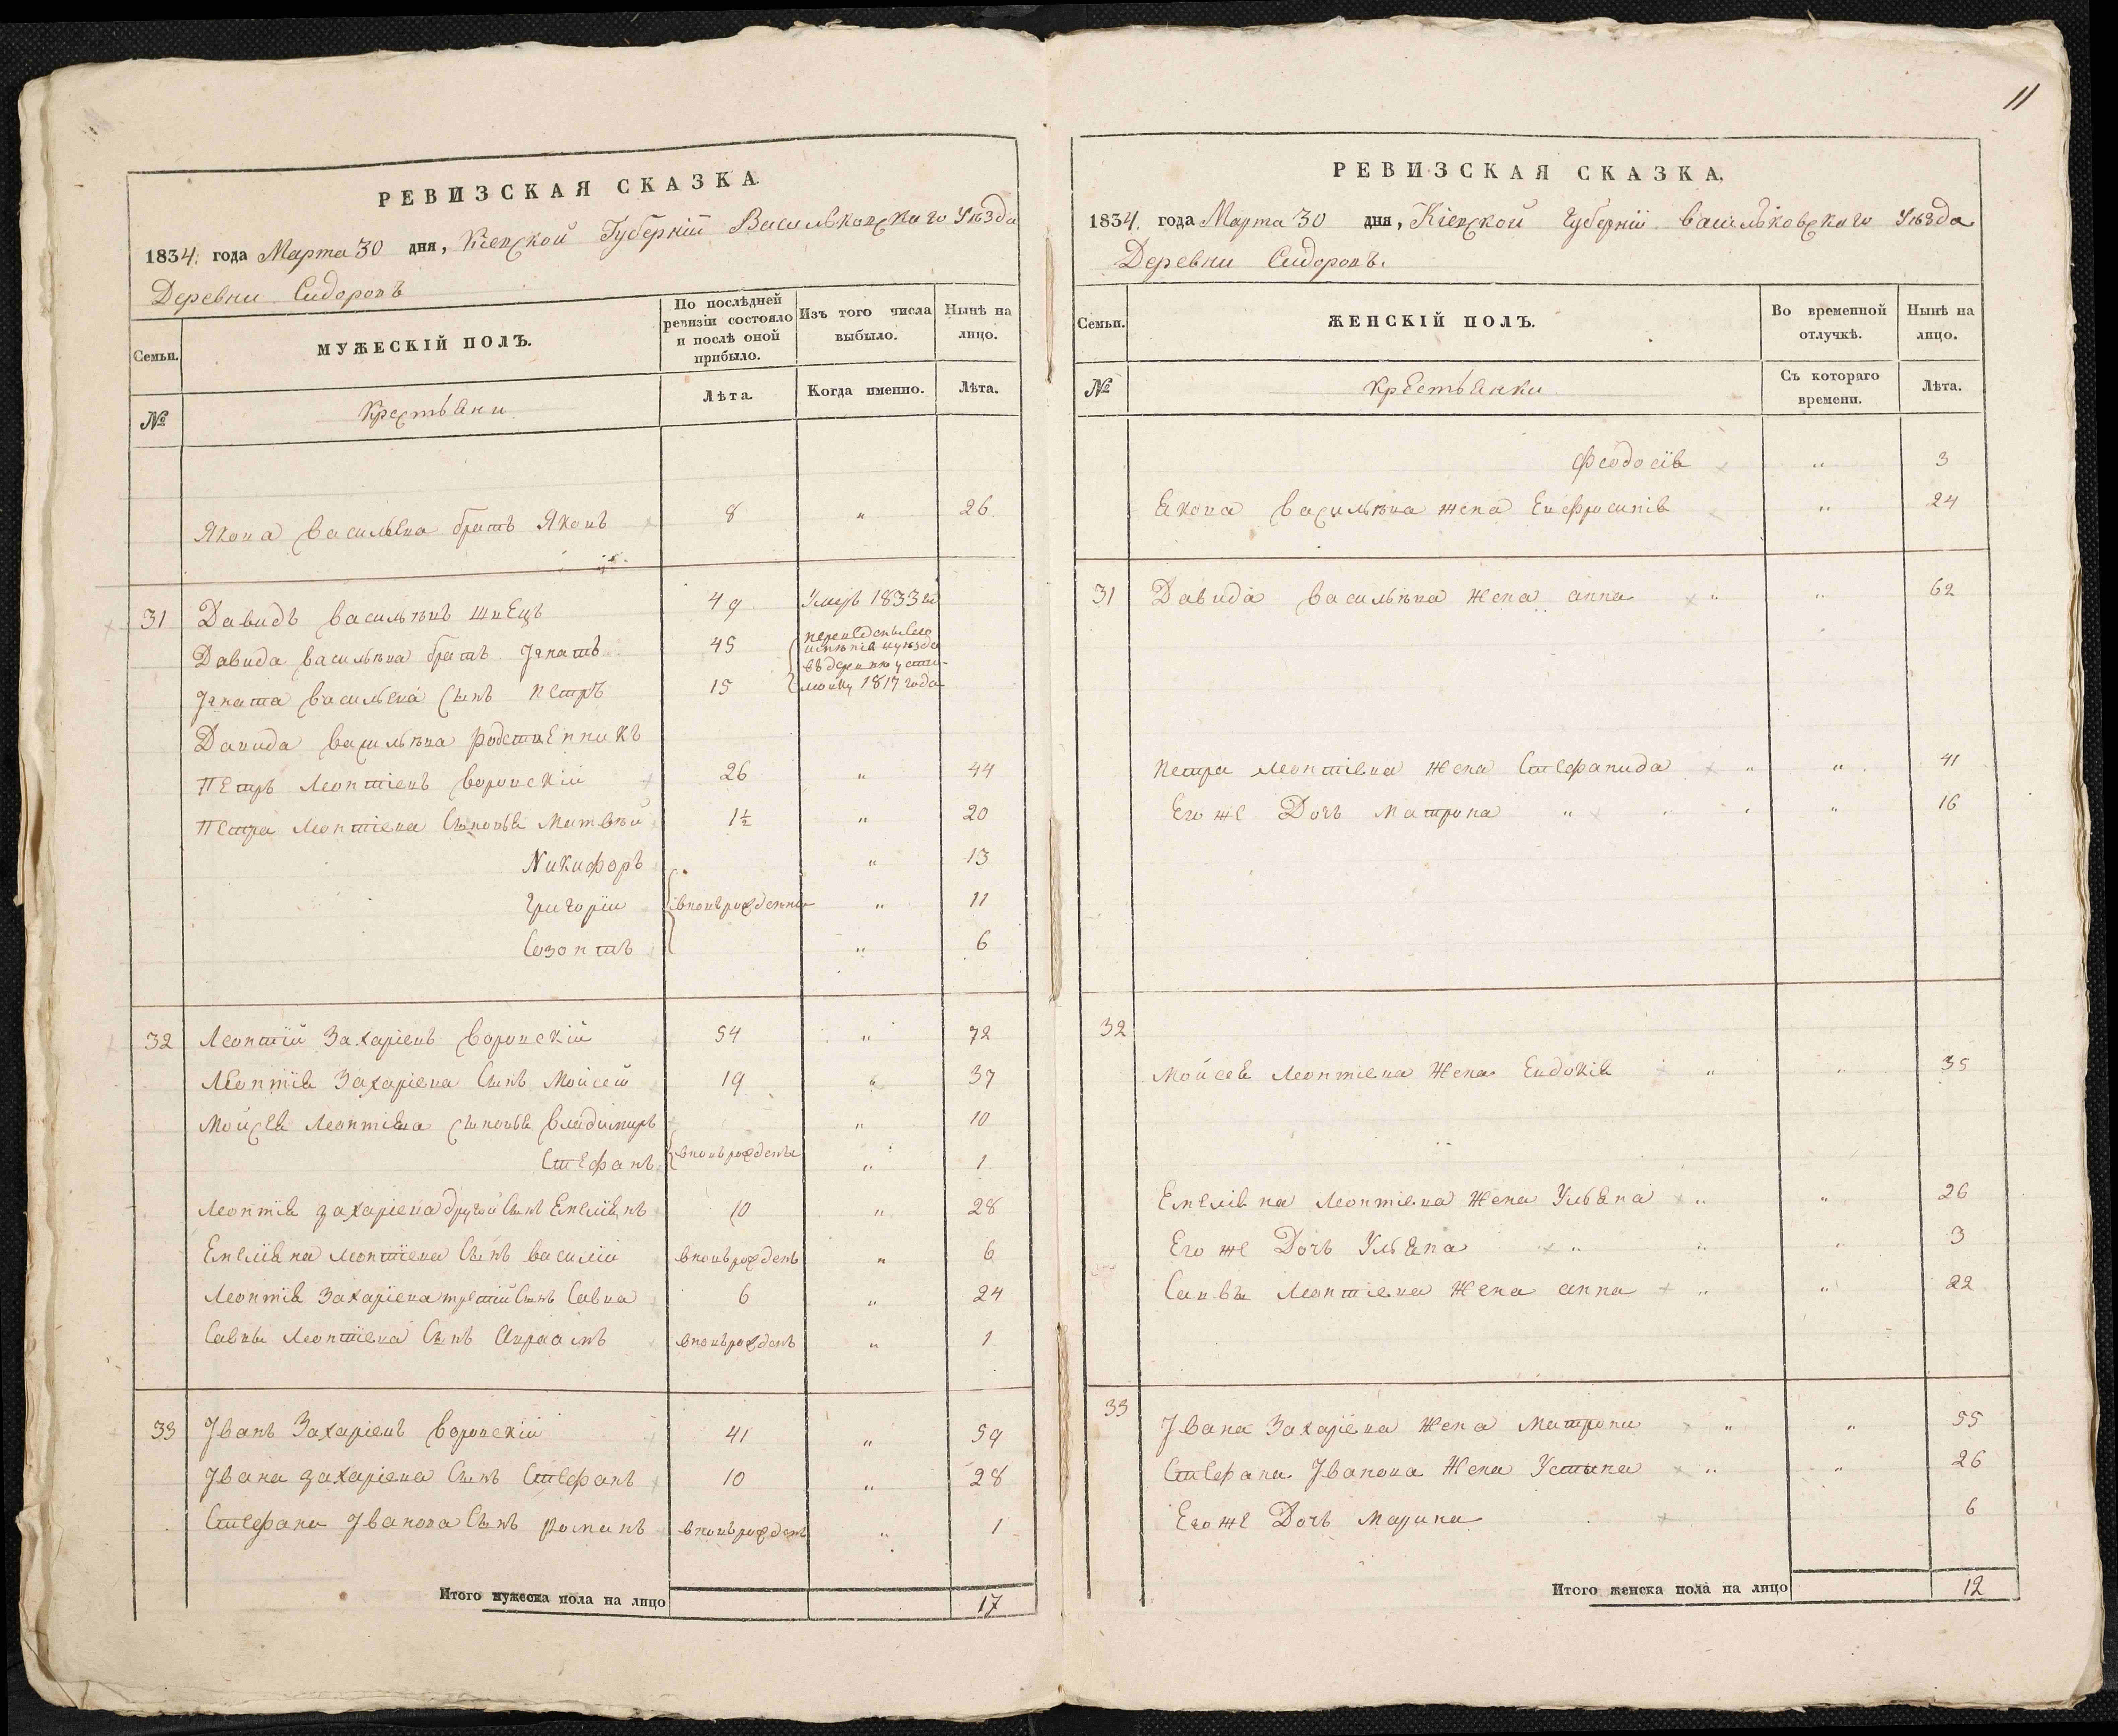 11
РЕВИЗСКАЯ СКАЗКА
1834. года Марта 30 дня, Кіевской Губерніи Васильковскаго Уѣзда
Деревни Сидоровъ
Семьи.
МУЖЕСКІЙ ПОЛЪ.
По послѣдней ревизіи состояло и послѣ оной прибыло.
Изъ того числа выбыло.
Нынѣ на лицо.
№
Крестьяни
Лѣта.
Когда именно.
Лѣта.
Якова Васильева братъ Яковъ 8 " 26
31 Давидъ Васильевъ швецъ 49 Умеръ 1833 го
Давида Васильева братъ Ігнатъ 45
Ігната Васильева Сынъ Петръ 15 1817 года
Давида Васильева родственникъ
Петръ Леонтіевъ Воронскій 26 " 44
Петра Леонтіева Сыновья Матвѣй 1½ " 20
Никифоръ " 13
Григорій вновьрожденны " 11
Созонтъ " 6
32 Леонтій Захаріевъ Воронскій 54 " 72
Леонтія Захаріева Сынъ Мойсей 19 " 37
Мойсея Леонтіева сыновья Владимиръ " 10
Стефанъ вновьрожденые " 1
Леонтія Захаріева другой Сынъ Емеліянъ 10 " 28
Емеліяна Леонтіева Сынъ Василій вновьрожденъ " 6
Леонтія Захаріева третій Сынъ Савва 6 " 24
Саввы Леонтіева Сынъ Авраамъ вновьрожденъ " 1
33 Іванъ Захаріевъ Воронскій 41 " 59
Івана Захаріева Сынъ Стефанъ 10 " 28
Стефана Іванова Сынъ Романъ вновьрожденъ " 1
Итого мужеска пола на лицо 17
РЕВИЗСКАЯ СКАЗКА.
1834. года Марта 30 дня, Кіевской Губерніи Васильковскаго Уѣзда
Деревни Сидоровъ.
Семьи.
ЖЕНСКІЙ ПОЛЪ.
Во временной отлучкѣ.
Нынѣ на лицо.
№
Крестьянки
Съ котораго времени.
Лѣта.
Феодосія " 3
Якова Васильева жена Евфросинія " 24
31 Давида Васильева Жена Анна " " 62
Петра Леонтіева Жена Стефанида " " 41
Его же Дочъ Матрона " " 16
32
Мойсея Леонтіева Жена Евдокія " " 35
Емеліяна Леонтіева Жена Ульяна " " 26
Его же Дочъ Ульяна " " " 3
Саввы Леонтіева Жена Анна " " 22
33
Івана Захаріева Жена Матрона " " 55
Стефана Іванова Жена Устина " " 26
Его же Дочъ Марина 6
Итого женска пола на лицо 12